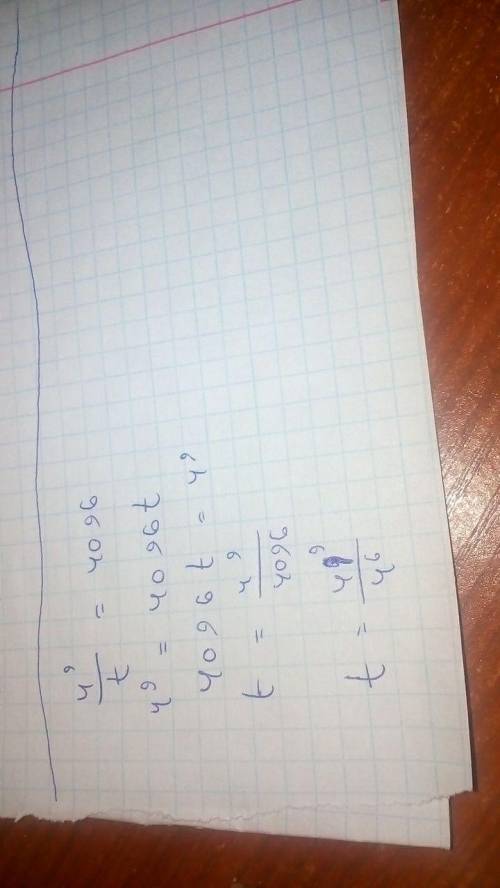 4⁹/t = 4096
4⁹ = 4096t
4096t = 4⁹
t = 4⁹/4096
t = 4⁹/4⁶